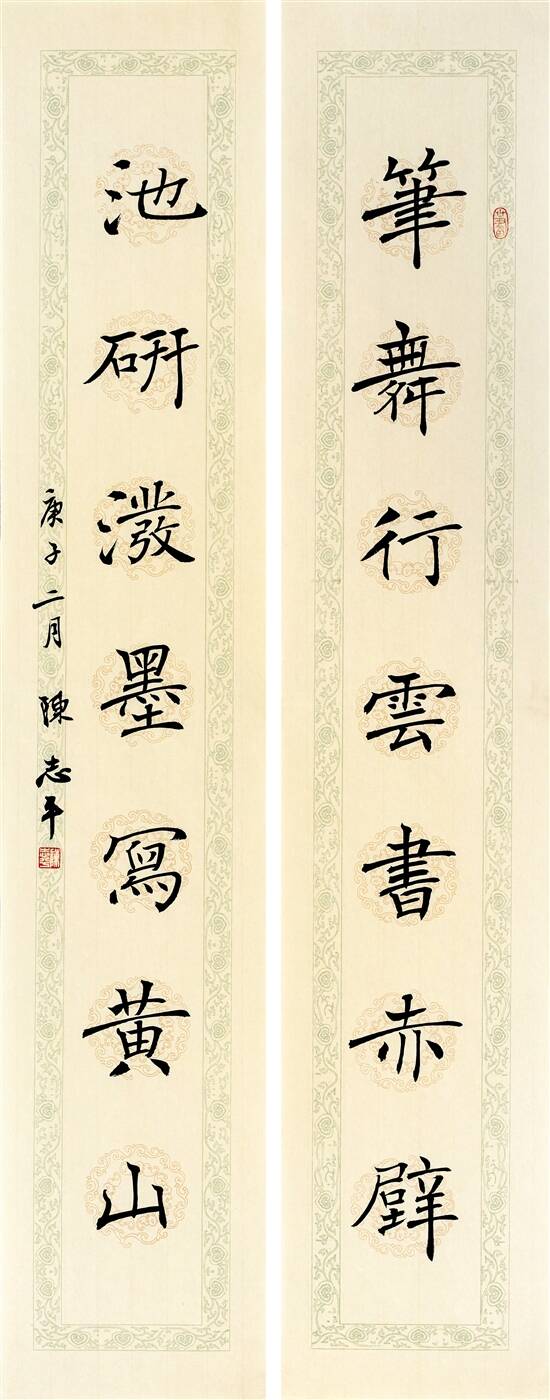 筆舞行雲書赤壁
池研潑墨寫黃山
庚子二月 陳志平